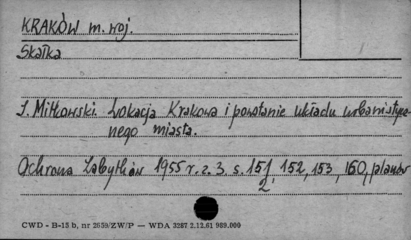 KRAKÓW m. woj.
Skałka
J. Mitkowski. Lokacja Krakowa i powstanie układu urbanistycz-
nego miasta.
Ochrona Zabytków 1955 r. z. 3. s. 151, 152, 153, 160, planów
2.
CWD - B-15 b, nr 2659/ZW/P — WDA 3287 2.12.61 989.000